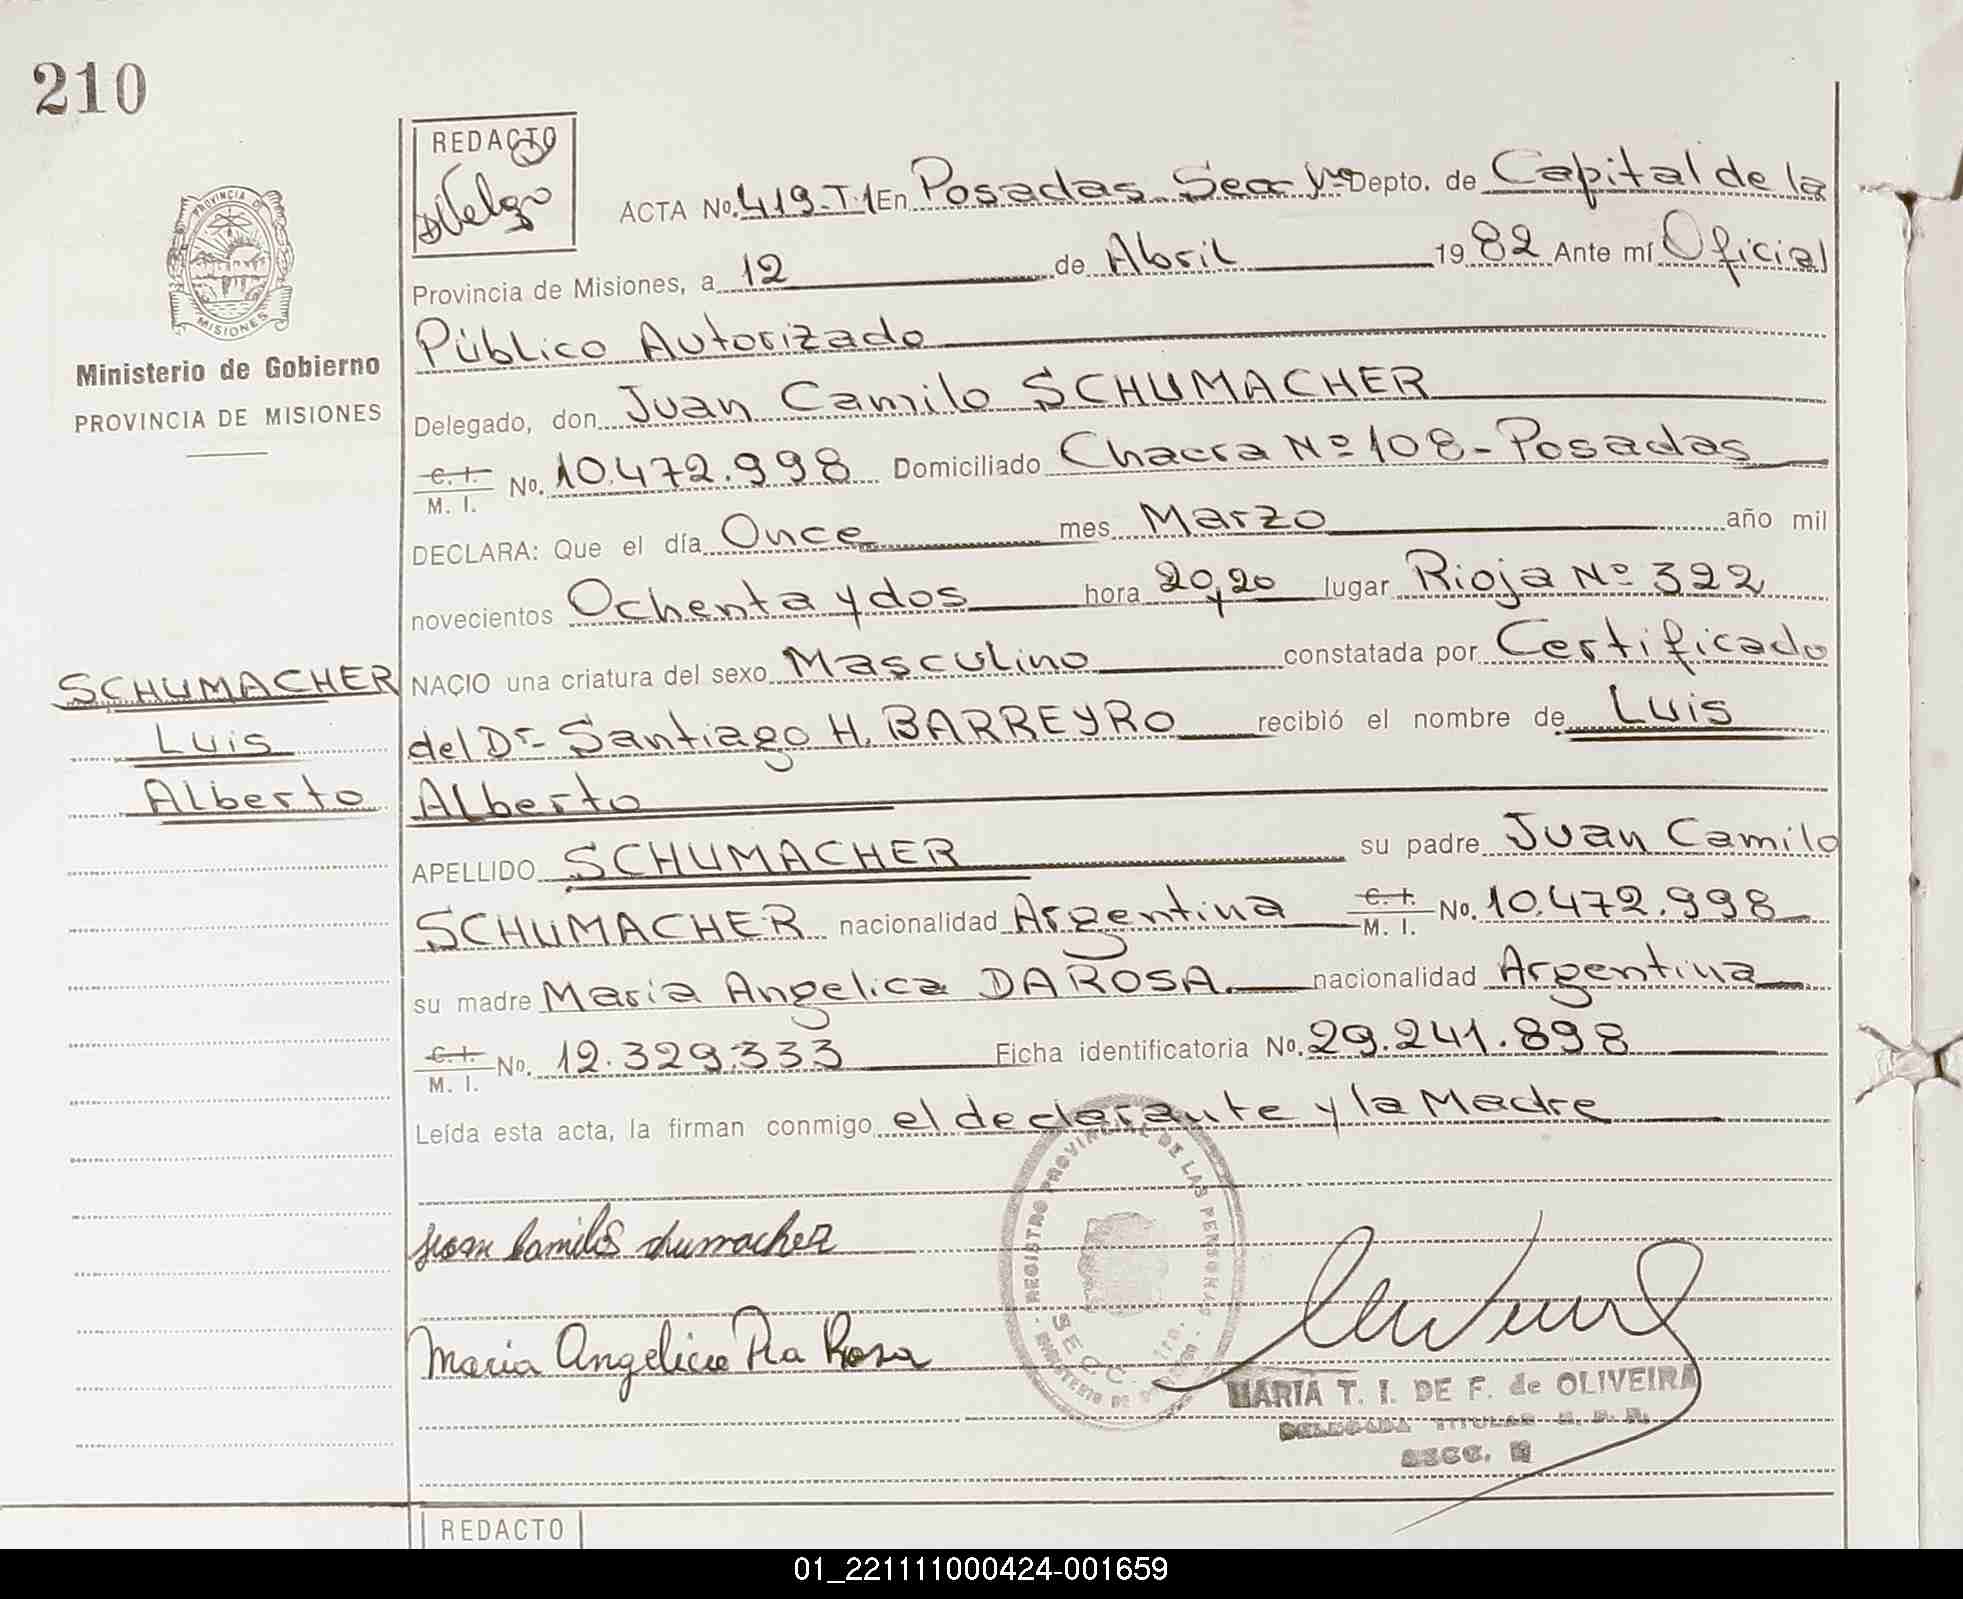 210
REDACTO
ACTA No. 419-T.1 En Posadas Secc 1ra Depto. de Capital de la
Provincia de Misiones, a 12 de Abril 1982 Ante mí Oficial
Público Autorizado
PROVINCIA DE
MISIONES
Ministerio de Gobierno
PROVINCIA DE MISIONES
Delegado, don Juan Camilo SCHUMACHER
C. I.
M. I. No. 10.472.998 Domiciliado Chacra Nº 108-Posadas
DECLARA: Que el día Once mes Marzo año mil
novecientos Ochenta y dos hora 20,20 lugar Rioja Nº 322
SCHUMACHER
Luis
Alberto
NACIO una criatura del sexo Masculino constatada por Certificado
del Dr. Santiago H. BARREYRO recibió el nombre de Luis
Alberto
APELLIDO SCHUMACHER su padre Juan Camilo
SCHUMACHER nacionalidad Argentina C. I. M. I. No. 10.472.998
su madre Maria Angelica DA ROSA nacionalidad Argentina
C. I.
M. I. No. 12.329.333 Ficha identificatoria No. 29.241.898
Leída esta acta, la firman conmigo el declarante y la Madre
REGISTRO PROVINCIAL DE LAS PERSONAS
SECC. 1ra.
MINISTERIO DE GOBIERNO
Juan Camilo Schumacher
Maria Angelica Da Rosa
MARIA T. I. DE F. de OLIVEIRA
DELEGADA TITULAR
SECC.
REDACTO
01_221111000424-001659